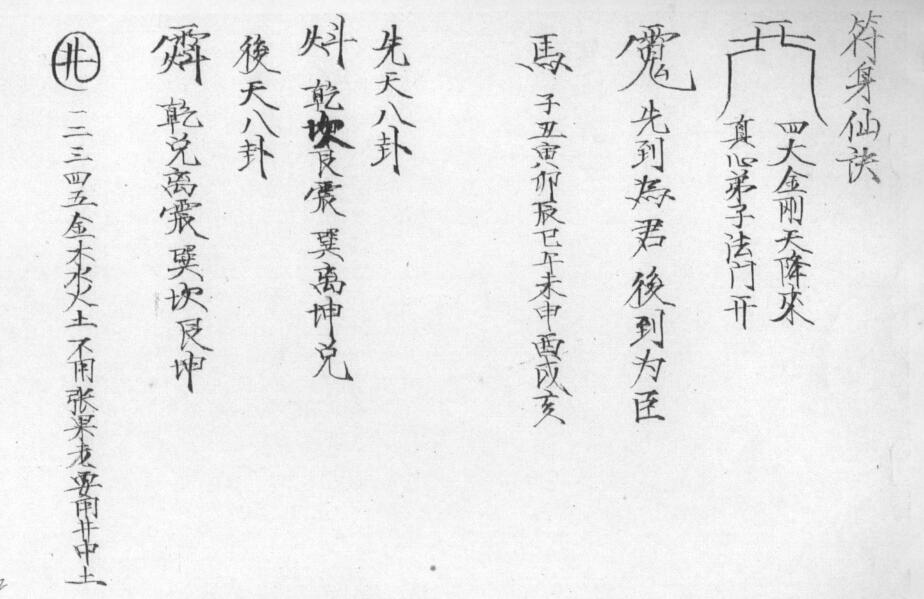 符身仙訣
四大金剛天降來
真心弟子法門开
先到為君後到为臣
馬 子丑寅卯辰巳午未申酉戌亥
先天八卦
乾坎艮震巽离坤兑
後天八卦
乾兑离震巽坎艮坤
一二三四五金木水火土不用张果老要用井中土